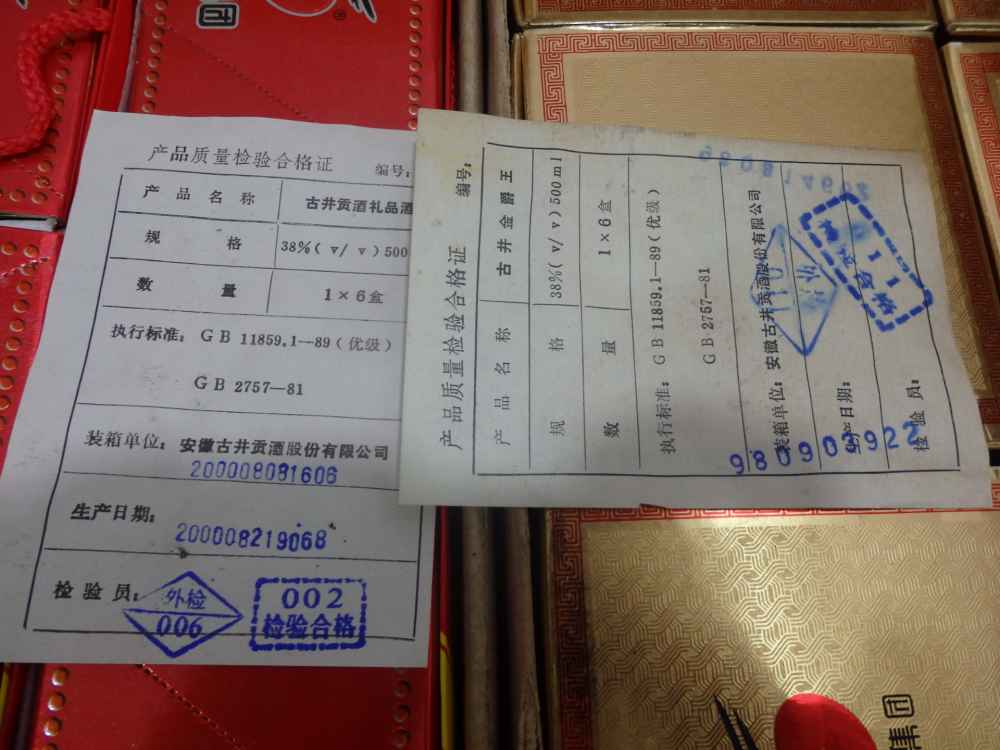 产品质量检验合格证
编号:
产品名称 古井贡酒礼品酒
规格 38%(v/v)500
数量 1×6盒
执行标准: GB 11859.1—89(优级)
GB 2757—81
装箱单位: 安徽古井贡酒股份有限公司
200008081606
生产日期:
200008219068
检验员:
外检
006
002
检验合格
产品质量检验合格证
编号:
产品名称 古井金爵王
规格 38%(v/v)500ml
数量 1×6盒
执行标准: GB 11859.1—89(优级)
GB 2757—81
装箱单位: 安徽古井贡酒股份有限公司
生产日期:
980902922
检验员:
团
集团